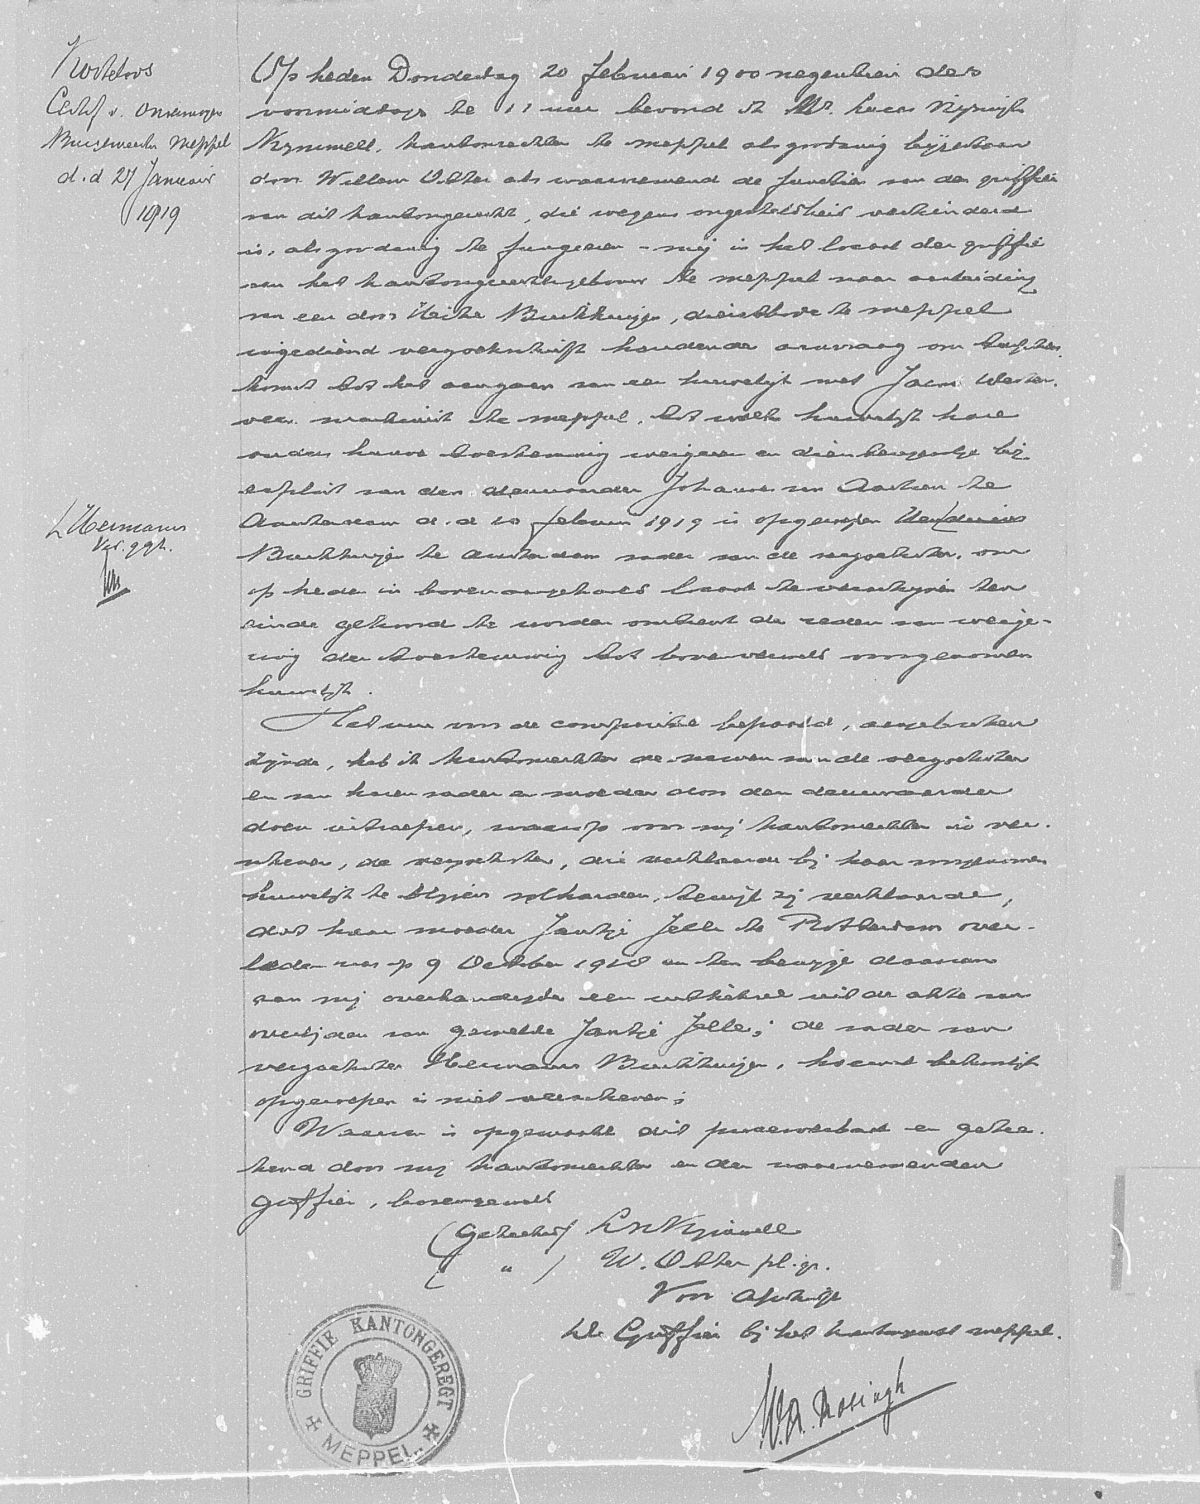 Kosteloos
Certif v. Onvermogen
Burgemeester Meppel
d.d 27 Januari
1919
Op heden Donderdag 20 Februari 1900 negentien des
voormiddags te 11 uur bevond ik Mr. Lucas Nysingh
Kymmell, kantonrechter te Meppel als zoodanig bijgestaan
door Willem Otter als waarnemend de functie van den griffier
van dit kantongerecht, die wegens ongesteldheid verhinderd
is, als zoodanig te fungeeren - mij in het locaal der griffie
van het kantongerechtsgebouw te Meppel naar aanleiding
van een door Burkhuijs, dienstbode te Meppel
ingediend verzoekschrift houdende aanvraag om tusschen
komst tot het aangaan van een huwelijk met Jacob Wester.
veen te Meppel, tot welk huwelijk hare
ouders hunne toestemming weigeren en dien bij
exploit van den deurwaarder Johannes van Aalten te
Amsterdam d.d 10 Februari 1919 is opgeroepen Hermanus
L Hermanus
Ver. ggk.
Burkhuijs te Amsterdam vader van de verzoekster, om
op heden in bovenaangehaald locaal te verschijnen ten
einde gehoord te worden omtrent de reden van weige-
ring der toestemming tot bovenvermeld voorgenomen
huwelijk.
Het uur voor de comparitie bepaald, aangebroken
zijnde, heb ik kantonrechter de namen van de verzoekster
en van haren vader en moeder door den deurwaarder
doen uitroepen, waarop voor mij kantonrechter is ver-
schenen, de verzoekster, die verklaarde bij haar voorgenomen
huwelijk te blijven volharden, terwijl zij verklaarde,
dat haar moeder Jantje Jelle te Rotterdam over-
leden was op 9 October 1918 en ten bewijze daarvan
aan mij overhandigde een uittreksel uit de akte van
overlijden van gemelde Jantje Jelle; de vader van
verzoekster Hermanus Burkhuijs, hoewel behoorlijk
opgeroepen is niet verschenen;
Waarvan is opgemaakt dit procesverbaal en getee-
kend door mij kantonrechter en den waarnemenden
griffier, bovengemeld
(Geteekend) L N Kymmell
( " ) W. Otter pl. gr.
Voor afschrift
De Griffier bij het kantongerecht Meppel.
GRIFFIE KANTONGEREGT
MEPPEL